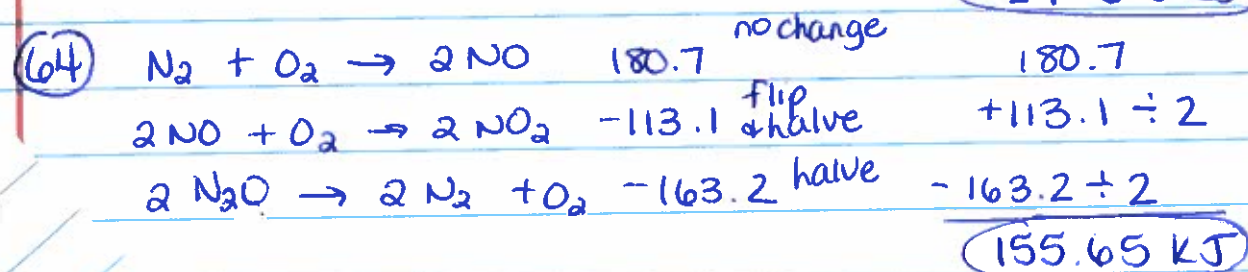 64 N₂ + O₂ → 2 NO 180.7 no change 180.7
2 NO + O₂ → 2 NO₂ -113.1 flip & halve +113.1 ÷ 2
2 N₂O → 2 N₂ + O₂ -163.2 halve - 163.2 ÷ 2
155.65 KJ